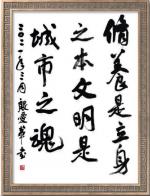 脩養是立身
之本文明是
城市之魂
二〇二一年三月